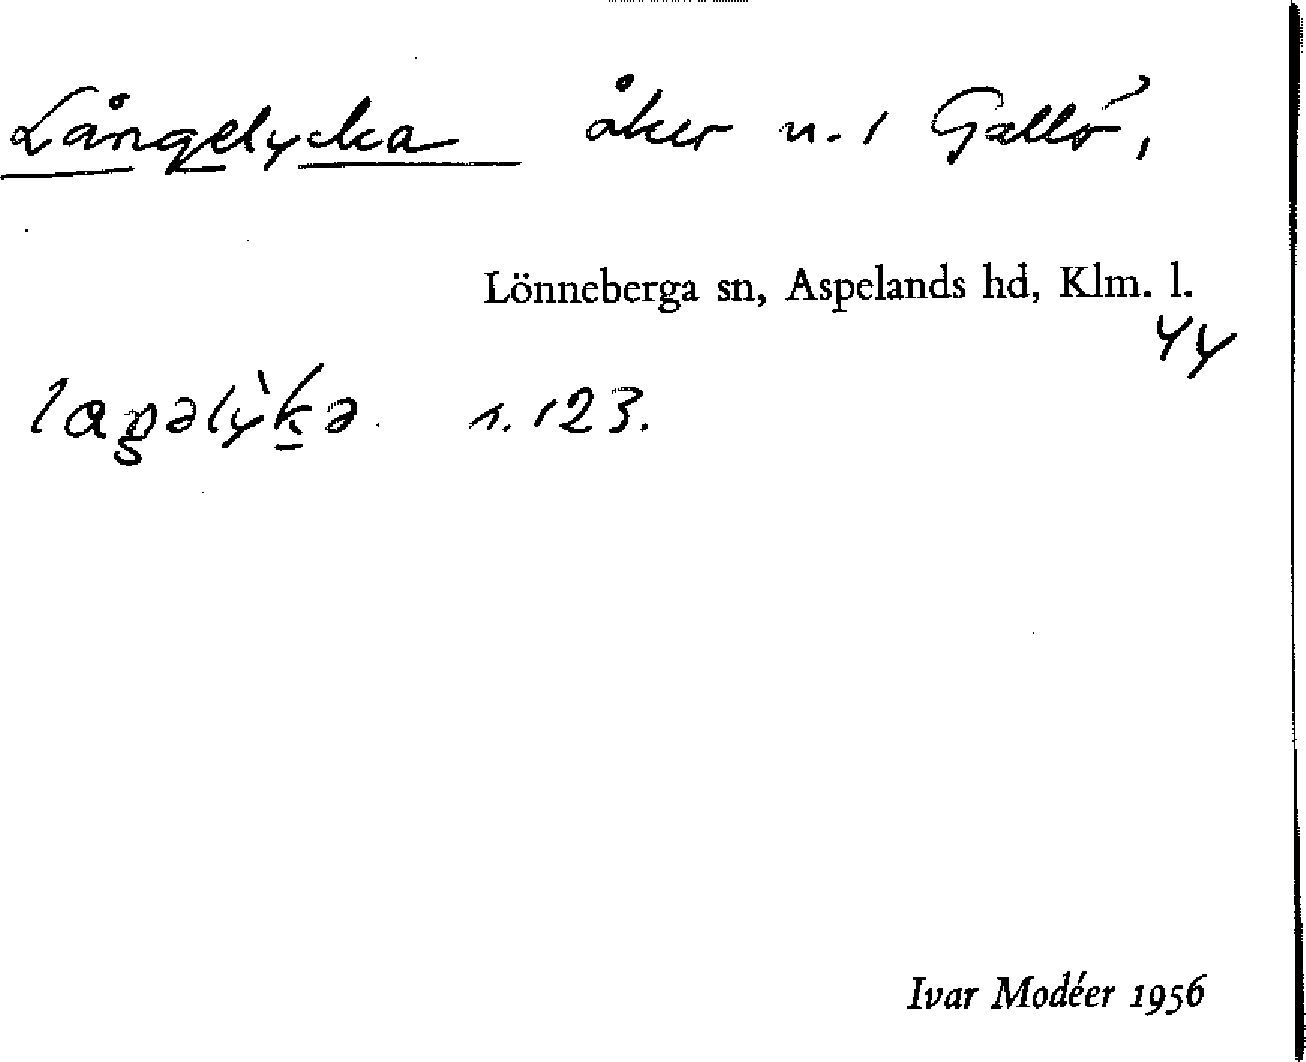 Långelycka åker n. 1 Gallö,
Lönneberga sn, Aspelands hd, Klm. l.
44
s. 123.
Ivar Modéer 1956